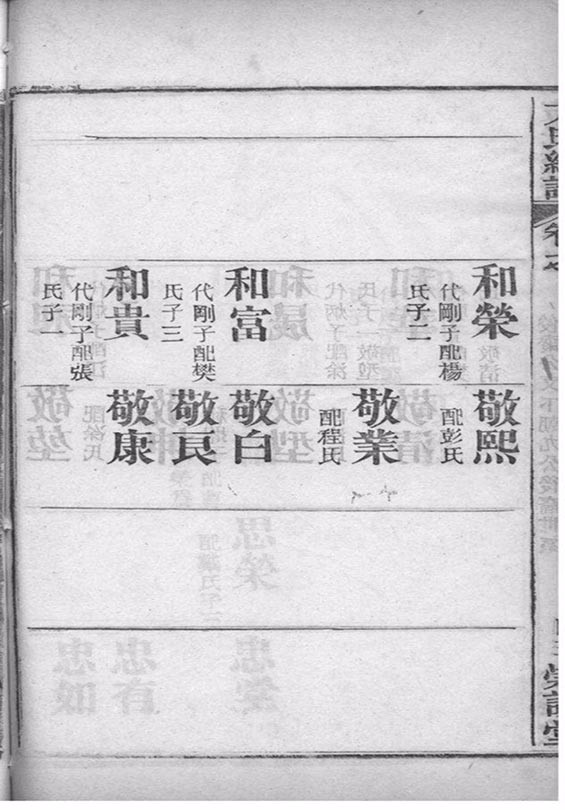 氏續譜
卷
和榮
代剛子配楊
氏子二
和富
代剛子配樊
氏子三
和貴
代剛子配張
氏子一
敬熙
配彭氏
敬業
配程氏
敬白
敬良
敬康